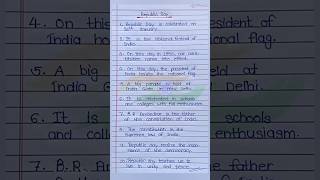 4. On this
India ho
5. A big
India G
6. It is
and coll
7. B.R. A
Republic Day
1. Republic Day is celebrated on
26th January.
2. It is the National festival of
India.
3. On this day in 1950, our
came into effect.
4. On this day, the president of
India hoists the national flag.
5. A big parade is held at
India Gate in New Delhi.
6. It is celebrated in schools
and colleges with full enthusiasm.
7. B.R. Ambedkar is the father
of the constitution of India.
8. The constitution is the
supreme law of India.
9. Republic day
of the democracy.
10. Republic day teaches us to
live in unity and peace.
esident of
al flag.
at
Delhi.
schools
enthusiasm.
father